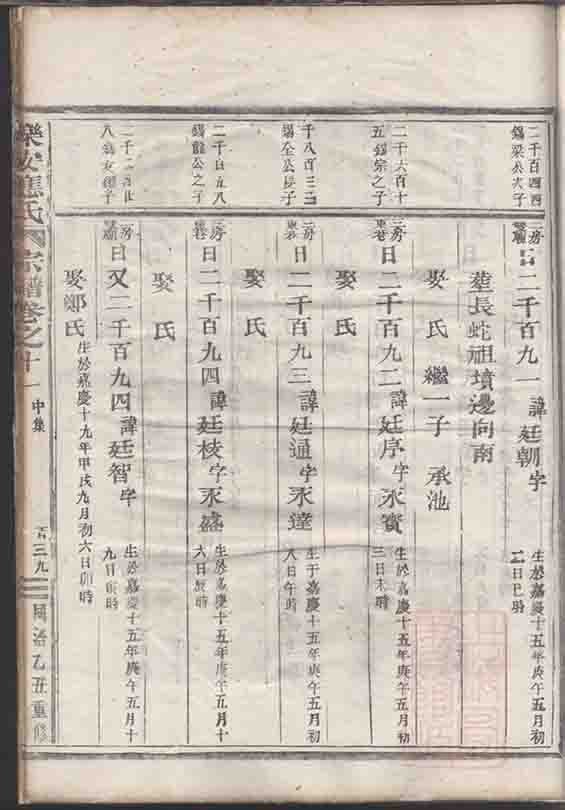 二千百四四
錫梁公次子
二房
二千百九一諱廷朝字
生於嘉慶十五年庚午五月初
二日巳時
葬長蛇祖墳邊向南
娶氏繼一子承池
二千六百十
五錫宗之子
三房
東巷
曰二千百九二諱廷序字永賓
生於嘉慶十五年庚午五月初
三日未時
娶氏
千八百三三
錫全公長子
二房
東巷
曰二千百九三諱廷通字永達
生于嘉慶十五年庚午五月初
八日午時
娶氏
二千
錫龍公之子
二房
曰二千百九四諱廷棱字永盛
生於嘉慶十五年庚午五月十
六日辰時
娶氏
二千
八錫友
二房
曰又二千百九四諱廷智字
生於嘉慶十五年庚午五月十
九日寅時
娶鄭氏
生於嘉慶十九年甲戌九月初六日卯時
樂安應氏宗譜卷之十一
中集
百三九
同治乙丑重修